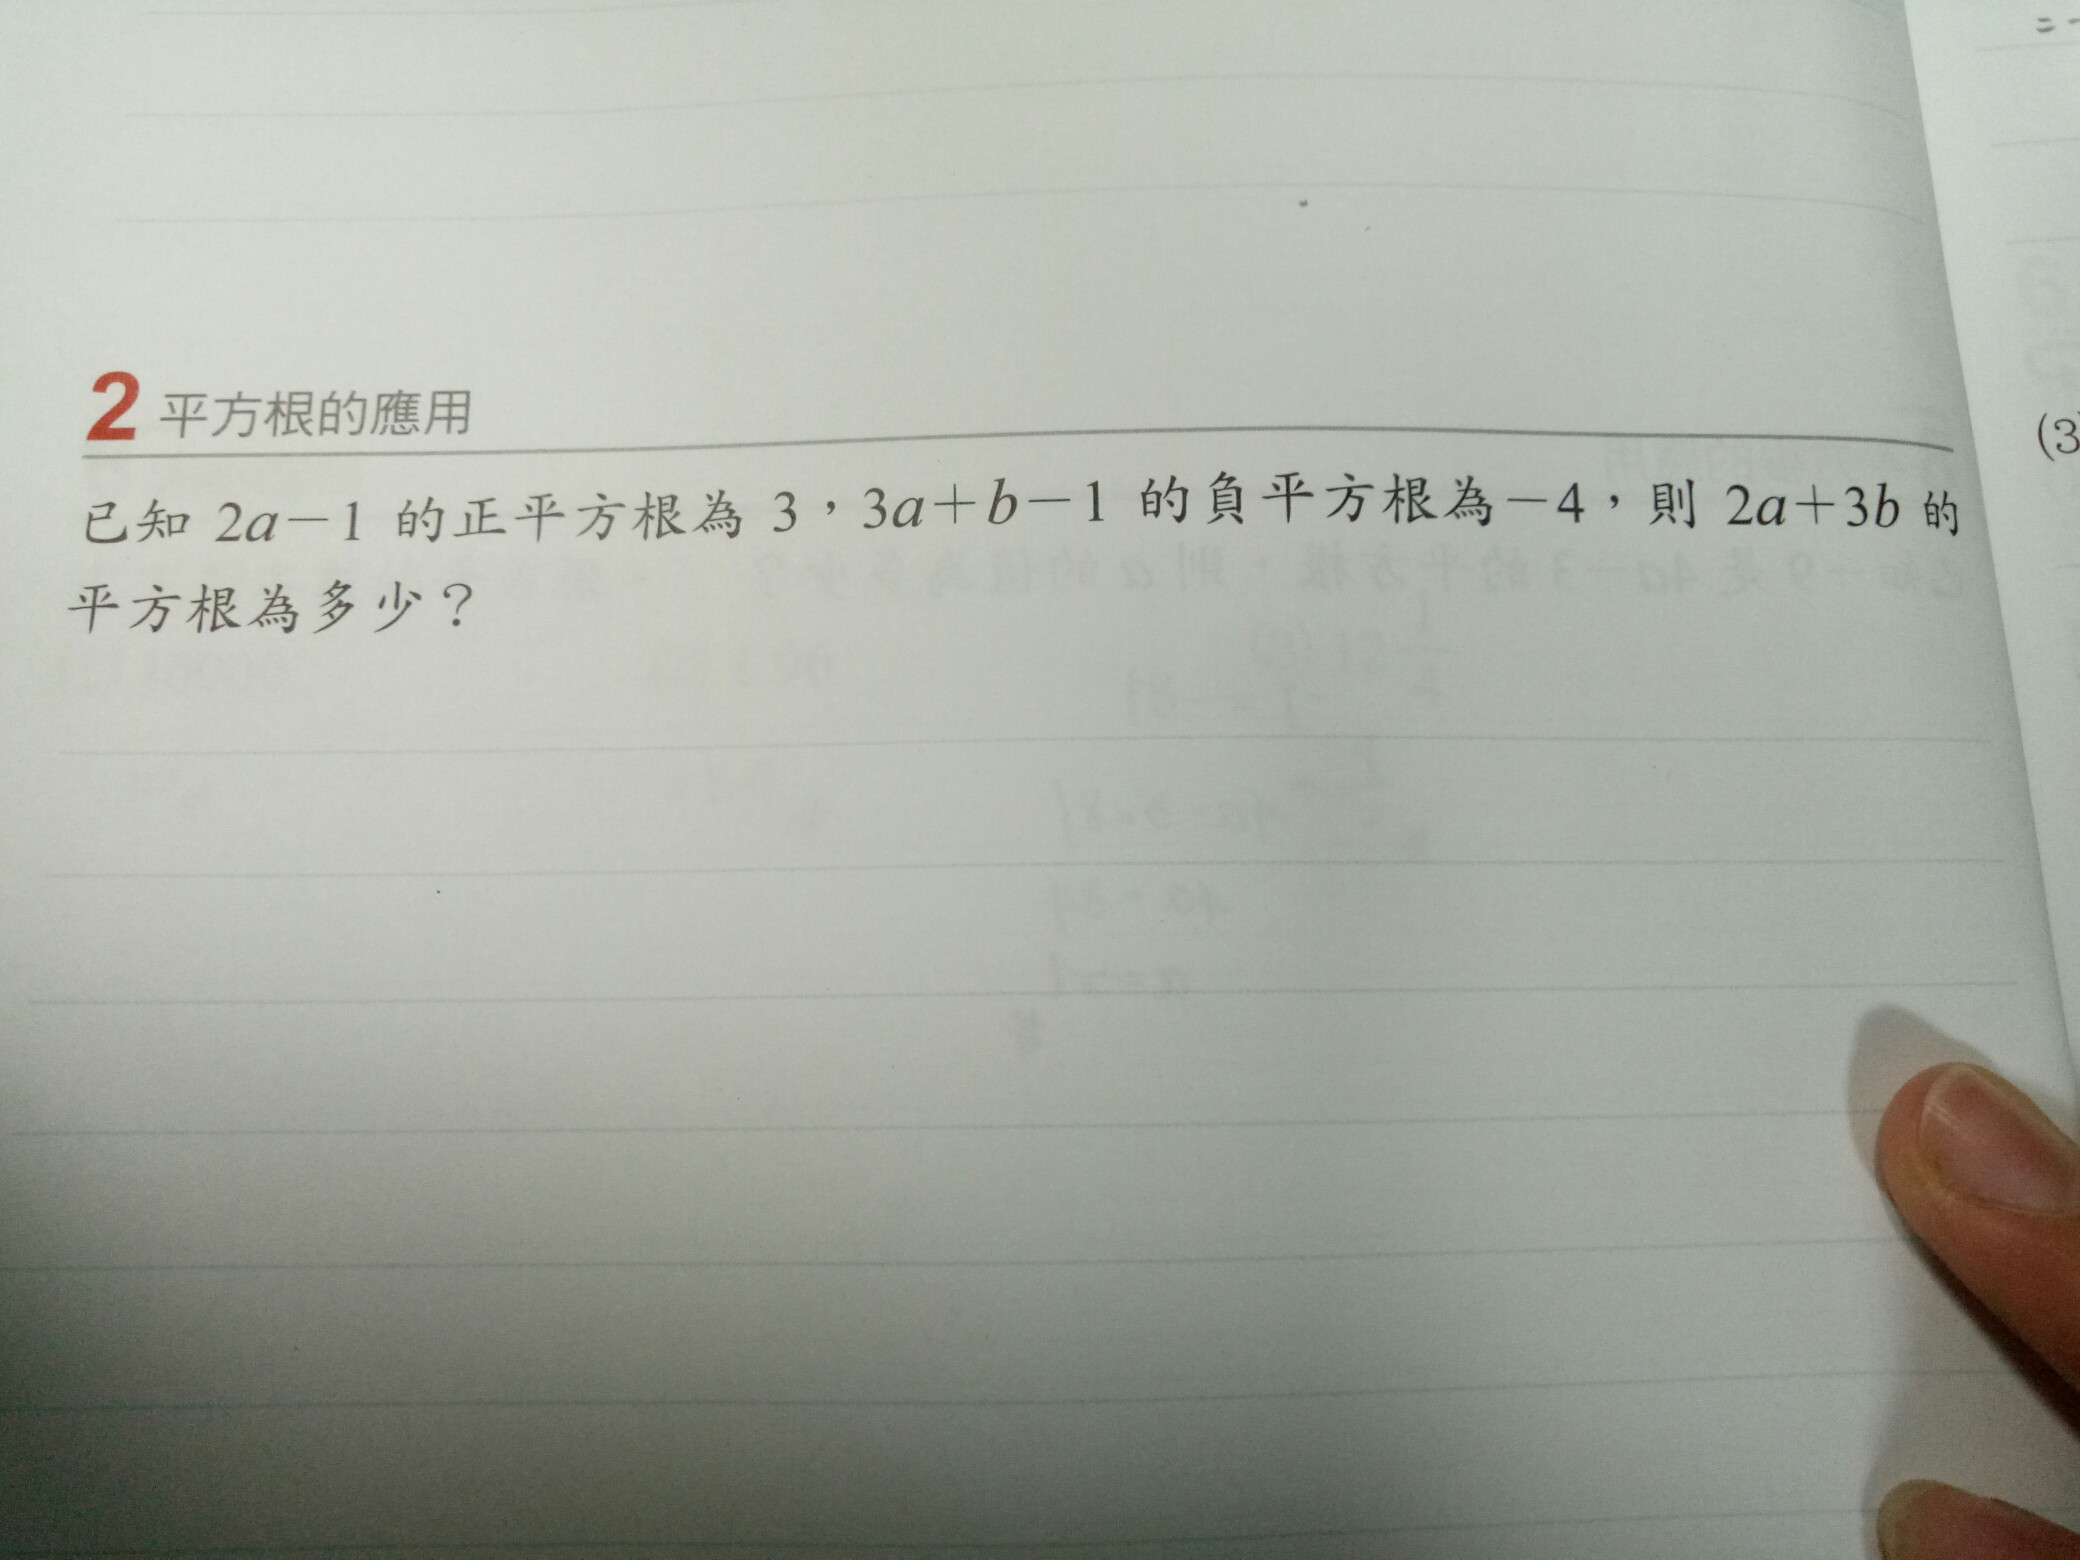 2 平方根的應用
(3
已知 2a－1 的正平方根為 3，3a＋b－1 的負平方根為－4，則 2a＋3b 的
平方根為多少？